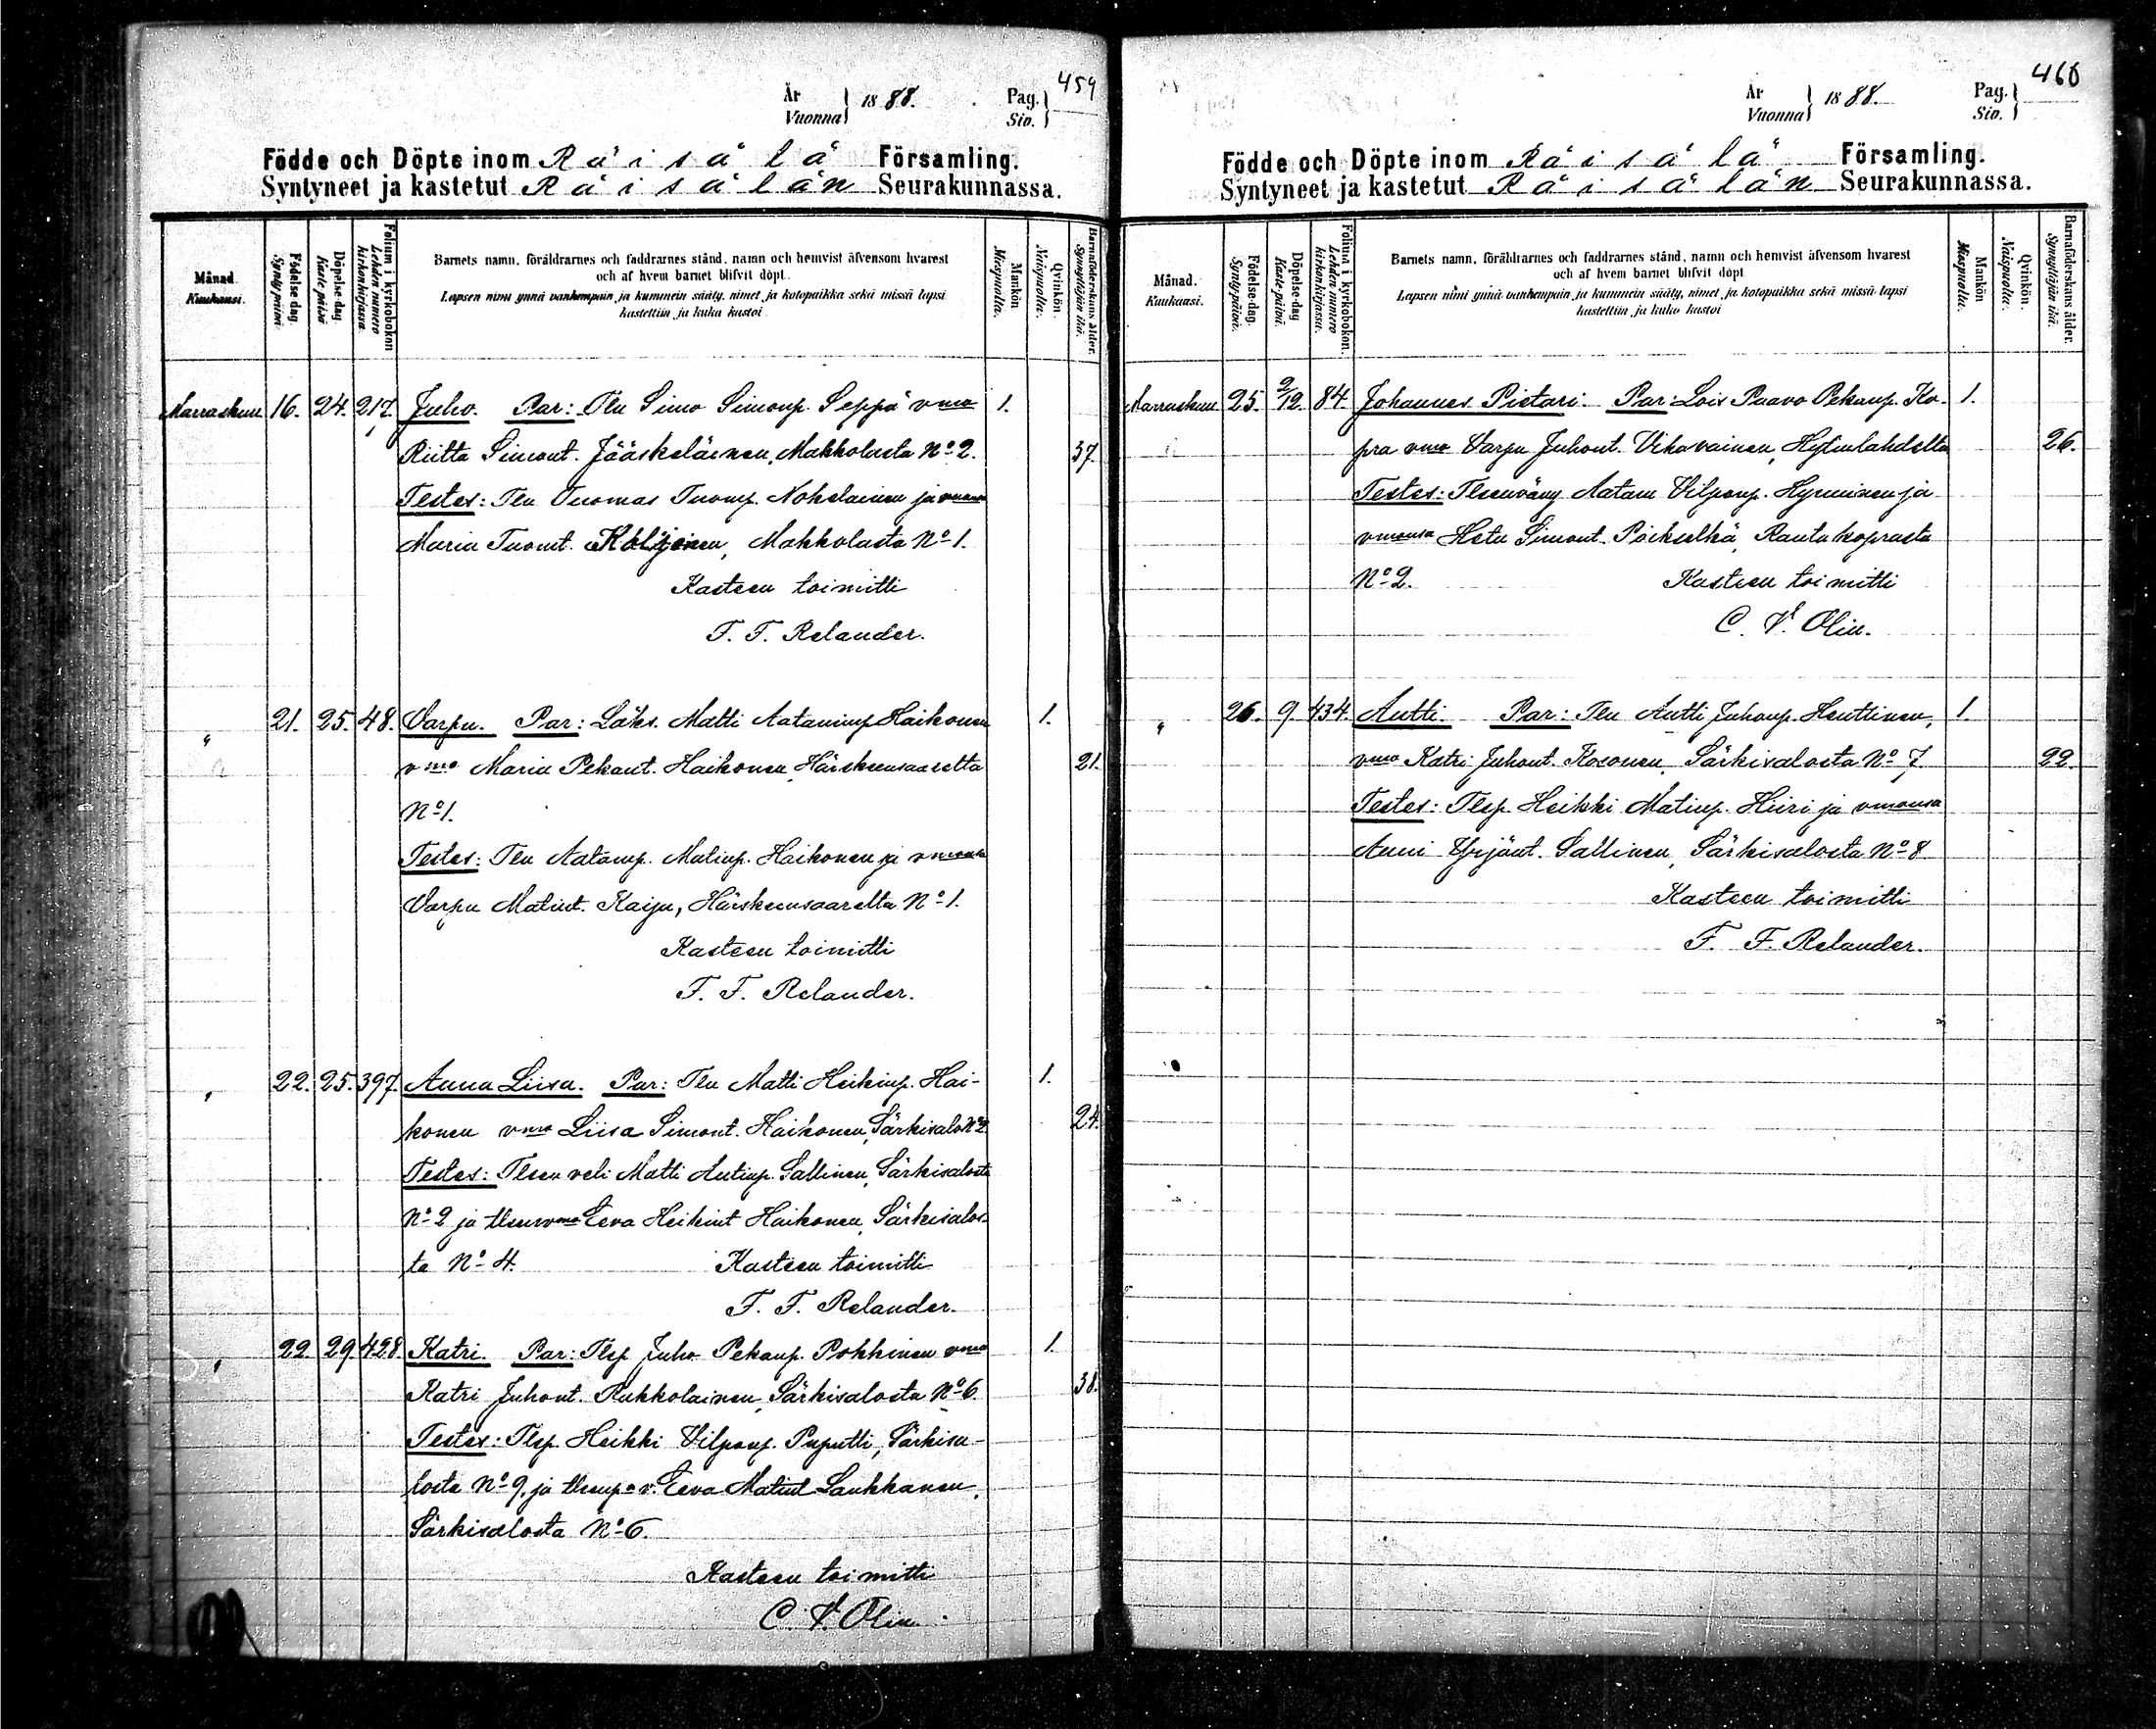 459
År
Vuonna } 1888. Pag.
Siv. }
Födde och Döpte inom Räisälä Församling.
Syntyneet ja kastetut Räisälän Seurakunnassa.
Månad.
Kuukausi.
Födelse-dag.
Synty-päivä.
Döpelse-dag.
Kaste-päivä
Folium i kyrkobokon
Lehden numero
kirkonkirjassa.
Barnets namn, föräldrarnes och faddrarnes stånd, namn och hemvist äfvensom hvarest
och af hvem barnet blifvit döpt.
Lapsen nimi ynnä vanhempain ja kummein sääty, nimet ja kotopaikka sekä missä lapsi
kastettiin ja kuka kastoi.
Mankön
Miespuolta.
Qvinkön.
Naispuolta.
Barnaföderskans ålder.
Synnyttäjän ikä.
Marraskuu 16. 24. 217. Juho. Par: Tln Simo Simonp. Seppä vmo 1.
Riitta Simont. Jääskeläinen, Makkolasta No 2. 37.
Testes: Tln Tuomas Tuomp. Nokelainen ja vmonsa
Maria Tuomt. Kiljonen, Makkolasta No 1.
Kasteen toimitti
F. F. Relander.
" 21. 25. 48. Varpu. Par: Läks. Matti Aataminp. Haikonen 1.
vmo Maria Pekant. Haikonen, Härskeensaarelta 21.
No 1.
Testes: Tln Aatamp. Matinp. Haikonen ja vmonsa
Varpu Matint. Kaiju, Härskeensaarelta No 1.
Kasteen toimitti
F. F. Relander.
" 22. 25. 397. Anna Liisa. Par: Tln Matti Heikinp. Hai- 1.
konen vmo Liisa Simont. Haikonen, Särkisalo No 2. 24.
Testes: Tlsen veli Matti Antinp. Sallinen, Särkisalosta
No 2 ja tlsenvmo Eeva Heikint Haikonen, Särkisalos-
ta No 4. Kasteen toimitti
F. F. Relander.
" 22. 29. 428. Katri. Par: Tlsp. Juho Pekanp. Pokkinen vmo 1.
Katri Juhont. Rukkolainen, Särkisalosta No 6. 38.
Testes: Tlsp. Heikki Vilponp. Puputti, Särkisa-
losta No 9. ja tlsenp. v. Eeva Matint Laukkanen,
Särkisalosta No 6.
Kasteen toimitti
C. V. Olin.
460
År
Vuonna } 1888. Pag.
Siv. }
Födde och Döpte inom Räisälä Församling.
Syntyneet ja kastetut Räisälän Seurakunnassa.
Månad.
Kuukausi.
Födelse-dag.
Synty-päivä.
Döpelse-dag
Kaste-päivä.
Folium i kyrkobokon.
Lehden numero
kirkonkirjassa.
Barnets namn, föräldrarnes och faddrarnes stånd, namn och hemvist äfvensom hvarest
och af hvem barnet blifvit döpt.
Lapsen nimi ynnä vanhempain ja kummein sääty, nimet ja kotopaikka sekä missä lapsi
kastettiin ja kuka kastoi
Mankön
Miespuolta.
Qvinkön.
Naispuolta.
Barnaföderskans ålder.
Synnyttäjän ikä.
Marraskuu 25. 2/12. 84. Johannes Pietari. Par: Lois Paavo Pekanp. Ko- 1.
pra vmo Varpu Juhont. Vikavainen, Hytinlahdelta 26.
Testes: Tlsenväny Aatam Vilponp. Hyminen ja
vmonsa Hetu Simont. Poikselkä, Rautukoprasta
No 2. Kasteen toimitti
C. V. Olin.
" 26. 9. 434. Antti. Par: Tln Antti Juhonp. Henttinen, 1.
vmo Katri Juhont. Kosonen, Särkisalosta No 7. 22.
Testes: Tlsp. Heikki Matinp. Hiiri ja vmonsa
Anni Yrjönt. Sallinen, Särkisalosta No 8
Kasteen toimitti
F. F. Relander.